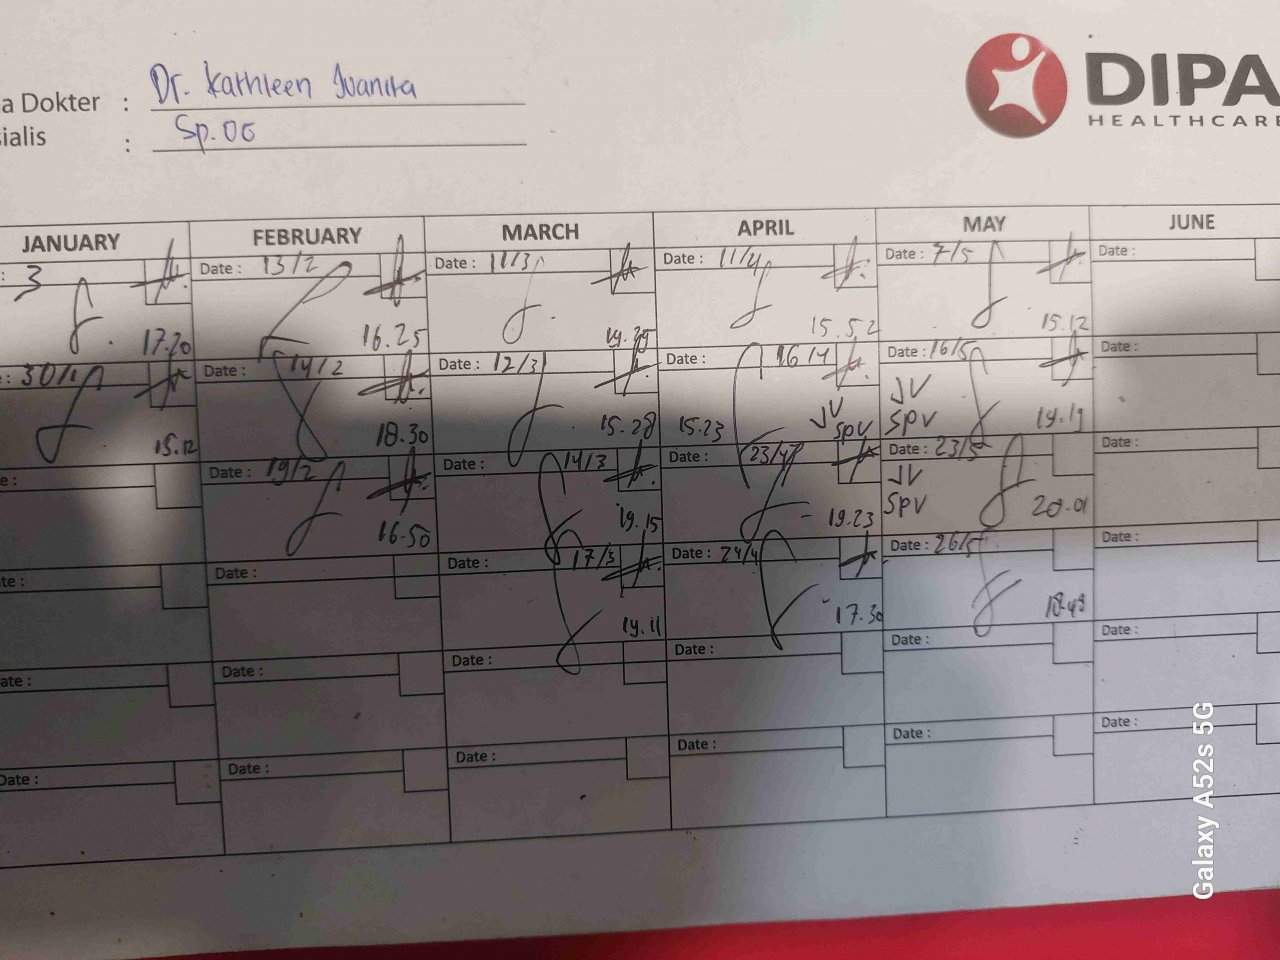 a Dokter : Dr. Kathleen Juanita
sialis : Sp.OG
DIPA
HEALTHCARE
JANUARY FEBRUARY MARCH APRIL MAY JUNE
: 3 Date : 13/2 Date : 11/3 Date : 11/4 Date : 7/5 Date :
17.20 16.25 19.29 15.52 15.12
: 30/1 Date : 14/2 Date : 12/3 Date : 16/4 Date : 16/5 Date :
15.12 18.30 15.28 15.23 JV SPV JV SPV 19.19
e : Date : 19/2 Date : 14/3 Date : 23/4 Date : 23/5 Date :
16.50 19.15 19.23 JV SPV 20.01
te : Date : Date : 17/3 Date : 24/4 Date : 26/5 Date :
19.11 17.30 18.48
ate : Date : Date : Date : Date : Date :
Date : Date : Date : Date : Date : Date :
Galaxy A52s 5G